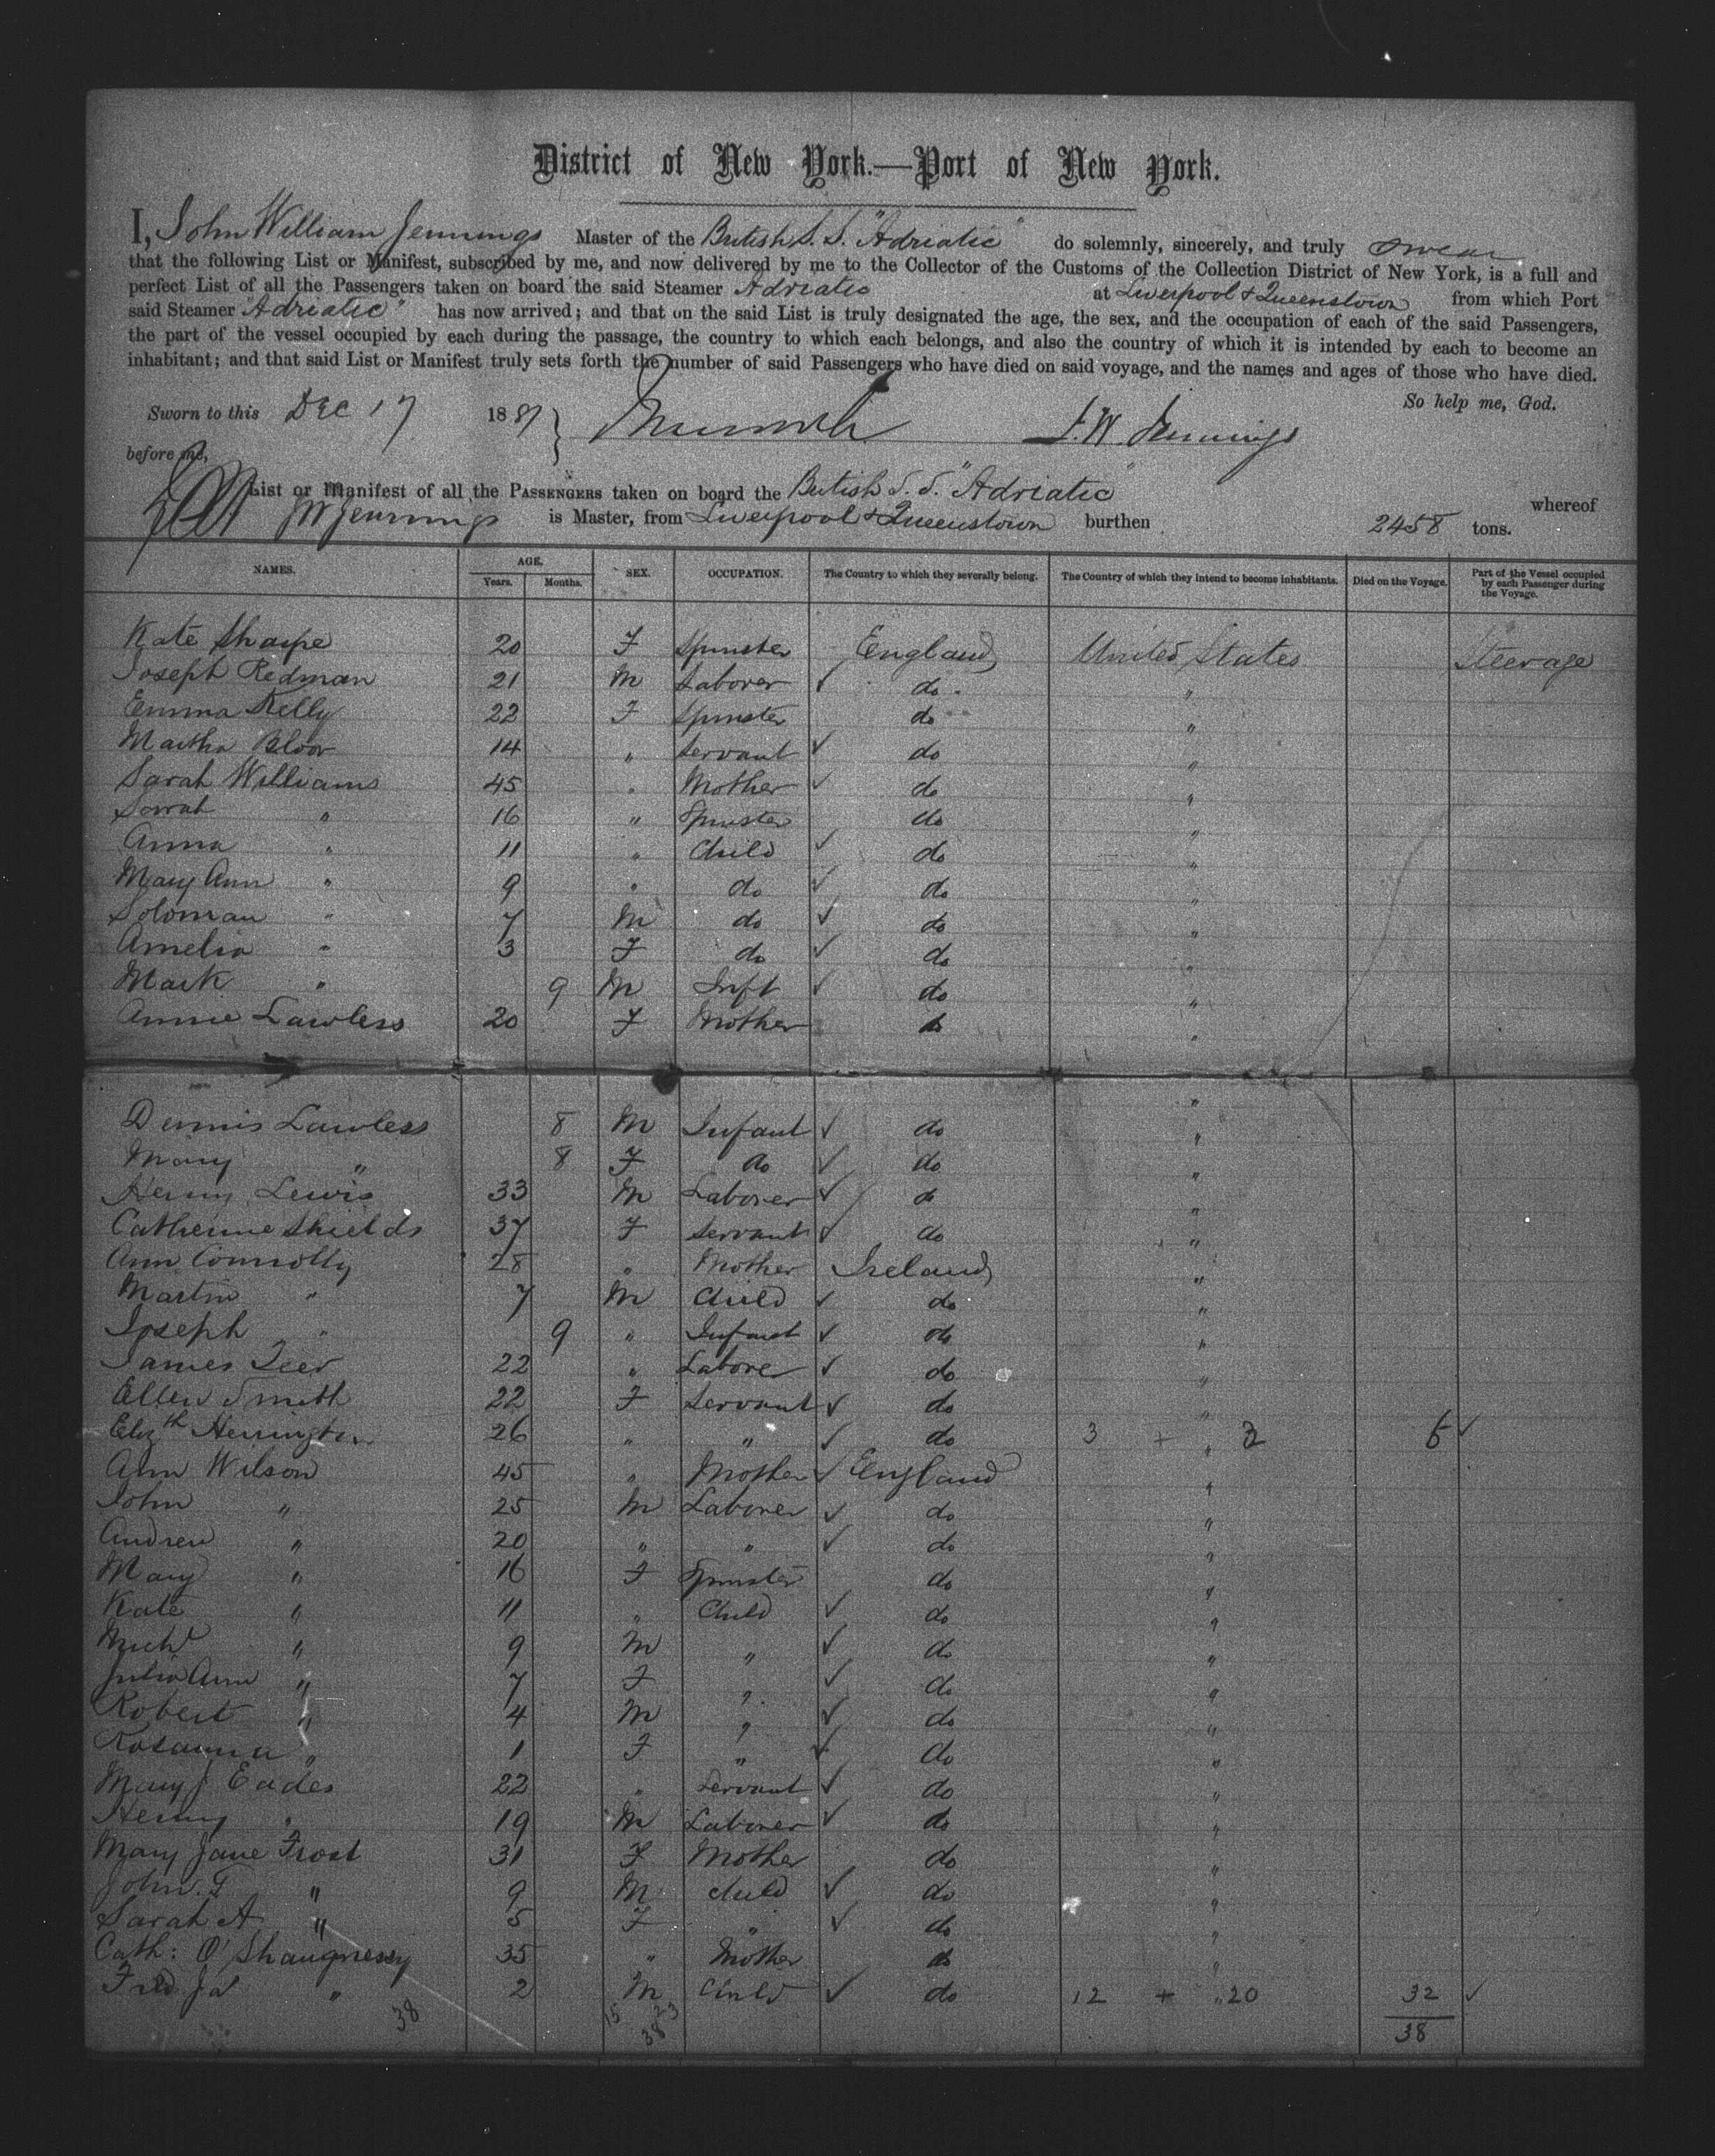 District of New York.—Port of New York.
I, John William Jennings Master of the British S.S. "Adriatic" do solemnly, sincerely, and truly swear
that the following List or Manifest, subscribed by me, and now delivered by me to the Collector of the Customs of the Collection District of New York, is a full and
perfect List of all the Passengers taken on board the said Steamer Adriatic at Liverpool & Queenstown from which Port
said Steamer "Adriatic" has now arrived; and that on the said List is truly designated the age, the sex, and the occupation of each of the said Passengers,
the part of the vessel occupied by each during the passage, the country to which each belongs, and also the country of which it is intended by each to become an
inhabitant; and that said List or Manifest truly sets forth the number of said Passengers who have died on said voyage, and the names and ages of those who have died.
So help me, God.
Sworn to this DEC 17 1881 J.W. Jennings
before me,
List or Manifest of all the PASSENGERS taken on board the British S.S. "Adriatic" whereof
JW Jennings is Master, from Liverpool & Queenstown burthen 2458 tons.
NAMES. AGE. Years. Months. SEX. OCCUPATION. The Country to which they severally belong. The Country of which they intend to become inhabitants. Died on the Voyage. Part of the Vessel occupied by each Passenger during the Voyage.
Kate Sharpe 20 F Spinster England United States Steerage
Joseph Redman 21 M Laborer ✓ do "
Emma Kelly 22 F Spinster do "
Martha Bloor 14 " Servant ✓ do "
Sarah Williams 45 " Mother ✓ do "
Sarah " 16 " Spinster do "
Anna " 11 " Child ✓ do "
Mary Ann " 9 " do ✓ do "
Soloman " 7 M do ✓ do "
Amelia " 3 F do ✓ do "
Mark " 9 M Inft ✓ do "
Annie Lawless 20 F Mother do "
Dennis Lawless 8 M Infant ✓ do "
Mary " 8 F do ✓ do "
Henry Lewis 33 M Laborer ✓ do "
Catherine Shields 37 F Servant ✓ do "
Ann Connolly 28 " Mother Ireland "
Martin " 7 M Child ✓ do "
Joseph " 9 " Infant ✓ do "
James Teer 22 " Labore ✓ do "
Ellen Smith 22 F Servant ✓ do "
Elizth Herrington 26 " " ✓ do 3 + " 6 ✓
Ann Wilson 45 " Mother ✓ England "
John " 25 M Laborer ✓ do "
Andrew " 20 " " ✓ do "
Mary " 16 F Spinster do "
Kate " 11 " Child ✓ do "
Michl " 9 M " ✓ do "
Julia Ann " 7 F " ✓ do "
Robert " 4 M " ✓ do "
Rosanna " 1 F " ✓ do "
Mary J Eades 22 " Servant ✓ do "
Henry " 19 M Laborer ✓ do "
Mary Jane Frost 31 F Mother do "
John. T " 9 M child ✓ do "
Sarah A " 5 F " ✓ do "
Cath: O'Shaugnessy 35 " Mother do "
Fred Js " 2 M Child ✓ do 12 + " 20 32 ✓
38 15 23 38 38